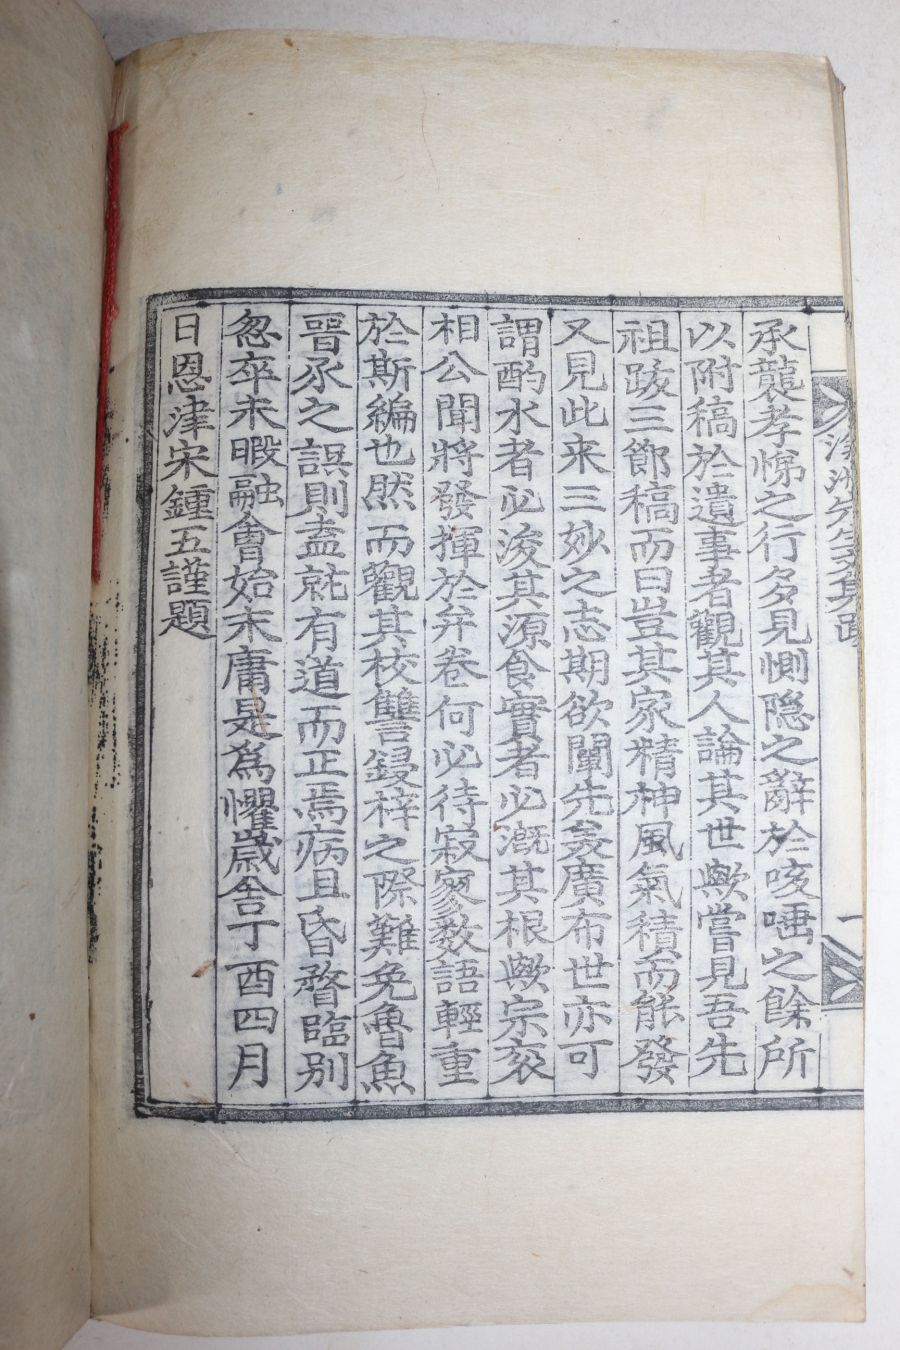 先生文集跋
一
承襲孝悌之行多見惻隐之辭於咳唾之餘所
以附稿於遺事者觀其人論其世歟嘗見吾先
祖跋三節稿而曰豈其家精神風氣積而能發
又見此来三妙之志期欲闡先羙廣布世亦可
謂酌水者必浚其源食實者必漑其根歟宗衮
相公聞將發揮於弁卷何必待寂寥数語輕重
於斯編也然而觀其校讐鋟梓之際難免魯魚
晉豕之誤則盍就有道而正焉病且昏瞀臨别
忽卒未暇融會始末庸是為懼歳舎丁酉四月
日恩津宋鍾五謹題